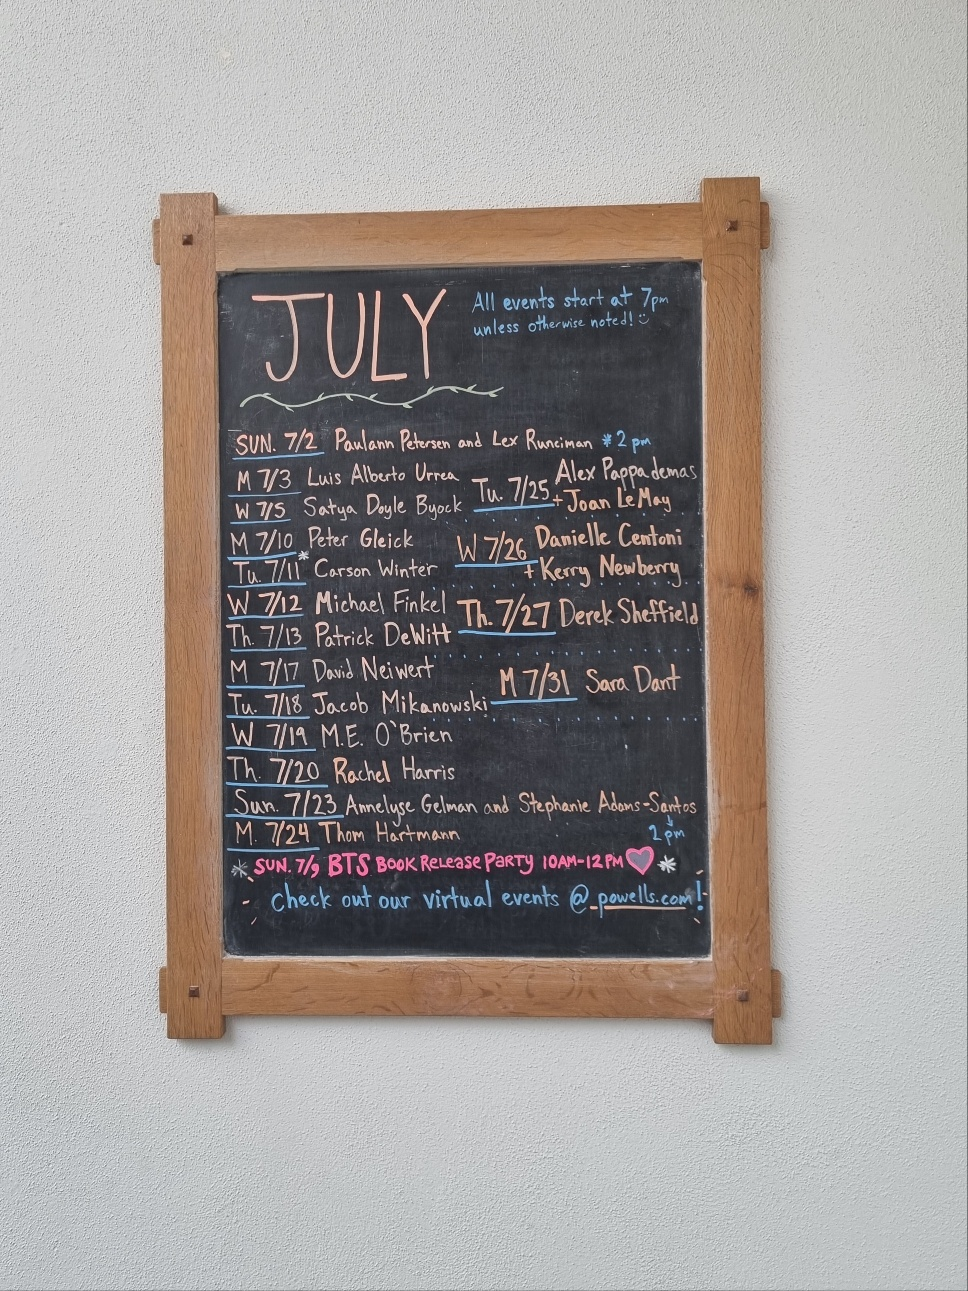 JULY
All events start at 7pm
unless otherwise noted!
SUN. 7/2 Paulann Petersen and Lex Runciman *2 pm
M 7/3 Luis Alberto Urrea
W 7/5 Satya Doyle Byock
M 7/10 Peter Gleick
Tu. 7/11 Carson Winter
W 7/12 Michael Finkel
Th. 7/13 Patrick DeWitt
M 7/17 David Neiwert
Tu. 7/18 Jacob Mikanowski
W 7/19 M.E. O'Brien
Th. 7/20 Rachel Harris
Sun. 7/23 Annelyse Gelman and Stephanie Adams-Santos
2 pm
M. 7/24 Thom Hartmann
Tu. 7/25 Alex Pappademas
+ Joan LeMay
W 7/26 Danielle Centoni
+ Kerry Newberry
Th. 7/27 Derek Sheffield
M 7/31 Sara Dant
* SUN. 7/9 BTS BOOK RELEASE PARTY 10AM-12PM *
Check out our virtual events @ powells.com!